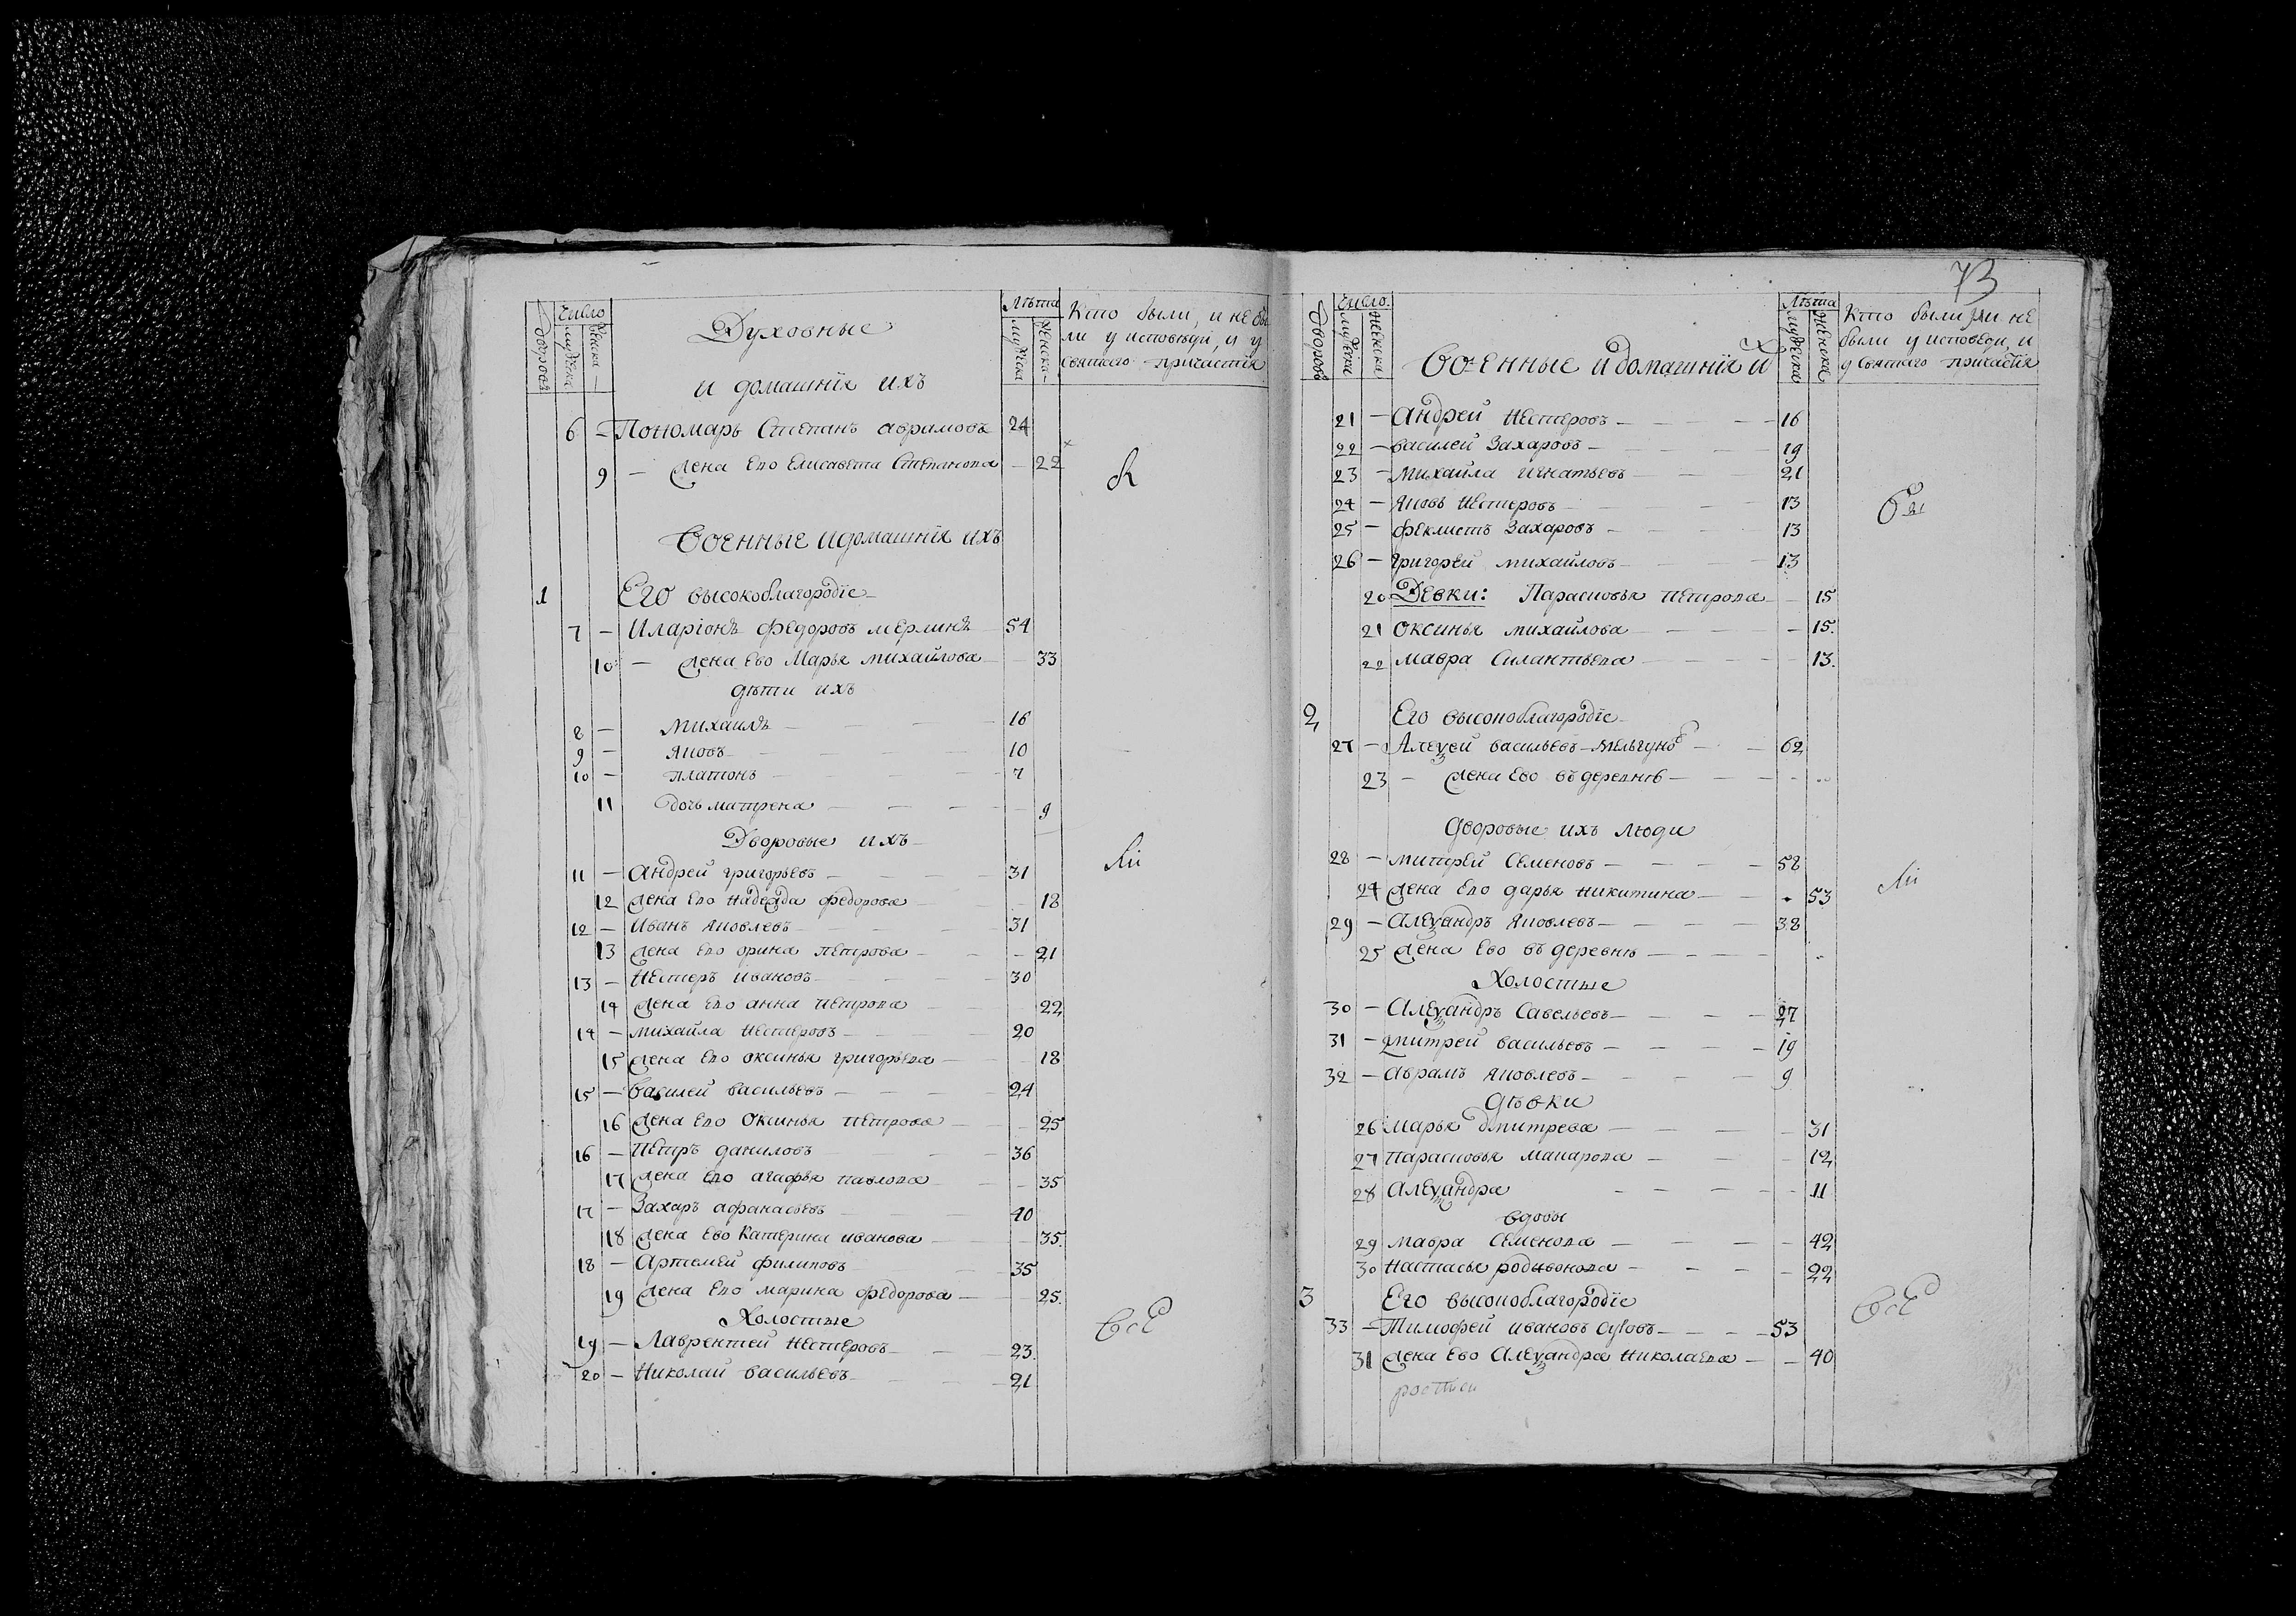 дворовъ
Число
мужеска
женска
Духовные
и домашнїя ихъ
Лѣта
мужеска
женска
Кто были, и не бы
ли у исповѣди, и у
святаго причастїя
6 — Пономарь Степанъ аврамовъ 24
9 — жена ево Елисавета Степанова — 22
Военные и домашнїя ихъ
1 Его высокоблагородїе
7 — Иларїонъ Федоровъ мерлинъ 54
10 — жена ево Марья михайлова — 33
дѣти ихъ
8 — михаилъ 16
9 — яковъ 10
10 — платонъ 7
11 дочь матрена 9
Дворовые ихъ
11 — андрей григорьевъ 31
12 жена ево надежда федорова 18
12 — Иванъ яковлевъ 31
13 жена ево орина петрова — 21
13 — нестеръ ивановъ 30
14 жена ево анна петрова 22
14 — михайла нестеровъ 20
15 жена ево оксинья григорьева 18
15 — василей васильевъ 24
16 жена ево оксинья петрова — 25
16 — петръ даниловъ 36
17 жена ево агафья павлова — 35
17 — Захаръ афанасьевъ 40
18 жена ево катерина иванова 35
18 — артемей филиповъ 35
19 жена ево марина федорова 25
Холостые
19 — Лаврентей нестеровъ 23
20 — николай васильевъ 21
ли
всЕ
73
дворовъ
Число
мужеска
женска
военные и домашнїя их
Лѣта
мужеска
женска
Кто были или не
были у исповеди, и
у святаго причастїя
21 — андрей нестеровъ 16
22 — василей Захаровъ 19
23 — михайла игнатьевъ 21
24 — яковъ нестеровъ 13
25 — феклистъ Захаровъ 13
26 — григорей михайловъ 13
20 Девки: Парасковья петрова — 15
21 оксинья михайлова — 15
22 мавра силантьева 13
2 Его высокоблагородїе
27 — Алеѯей васильевъ мельгуновъ 62
23 — жена ево въ деревнѣ
дворовые ихъ люди
28 — митрей семеновъ 58
24 жена ево дарья никитина 53
29 — алеѯандръ яковлевъ 38
25 жена ево въ деревнѣ
Холостые
30 — алеѯандръ савельевъ 27
31 — дмитрей васильевъ 19
32 — аврамъ яковлевъ 9
дѣвки
26 марья дмитрева — 31
27 парасковья макарова — 12
28 алеѯандра — 11
вдовы
29 мавра семенова — 42
30 настасья родивонова — 22
3 Его высокоблагородїе
33 — Тимофей ивановъ 53
31 жена ево алеѯандра николаева — 40
ли
всЕ